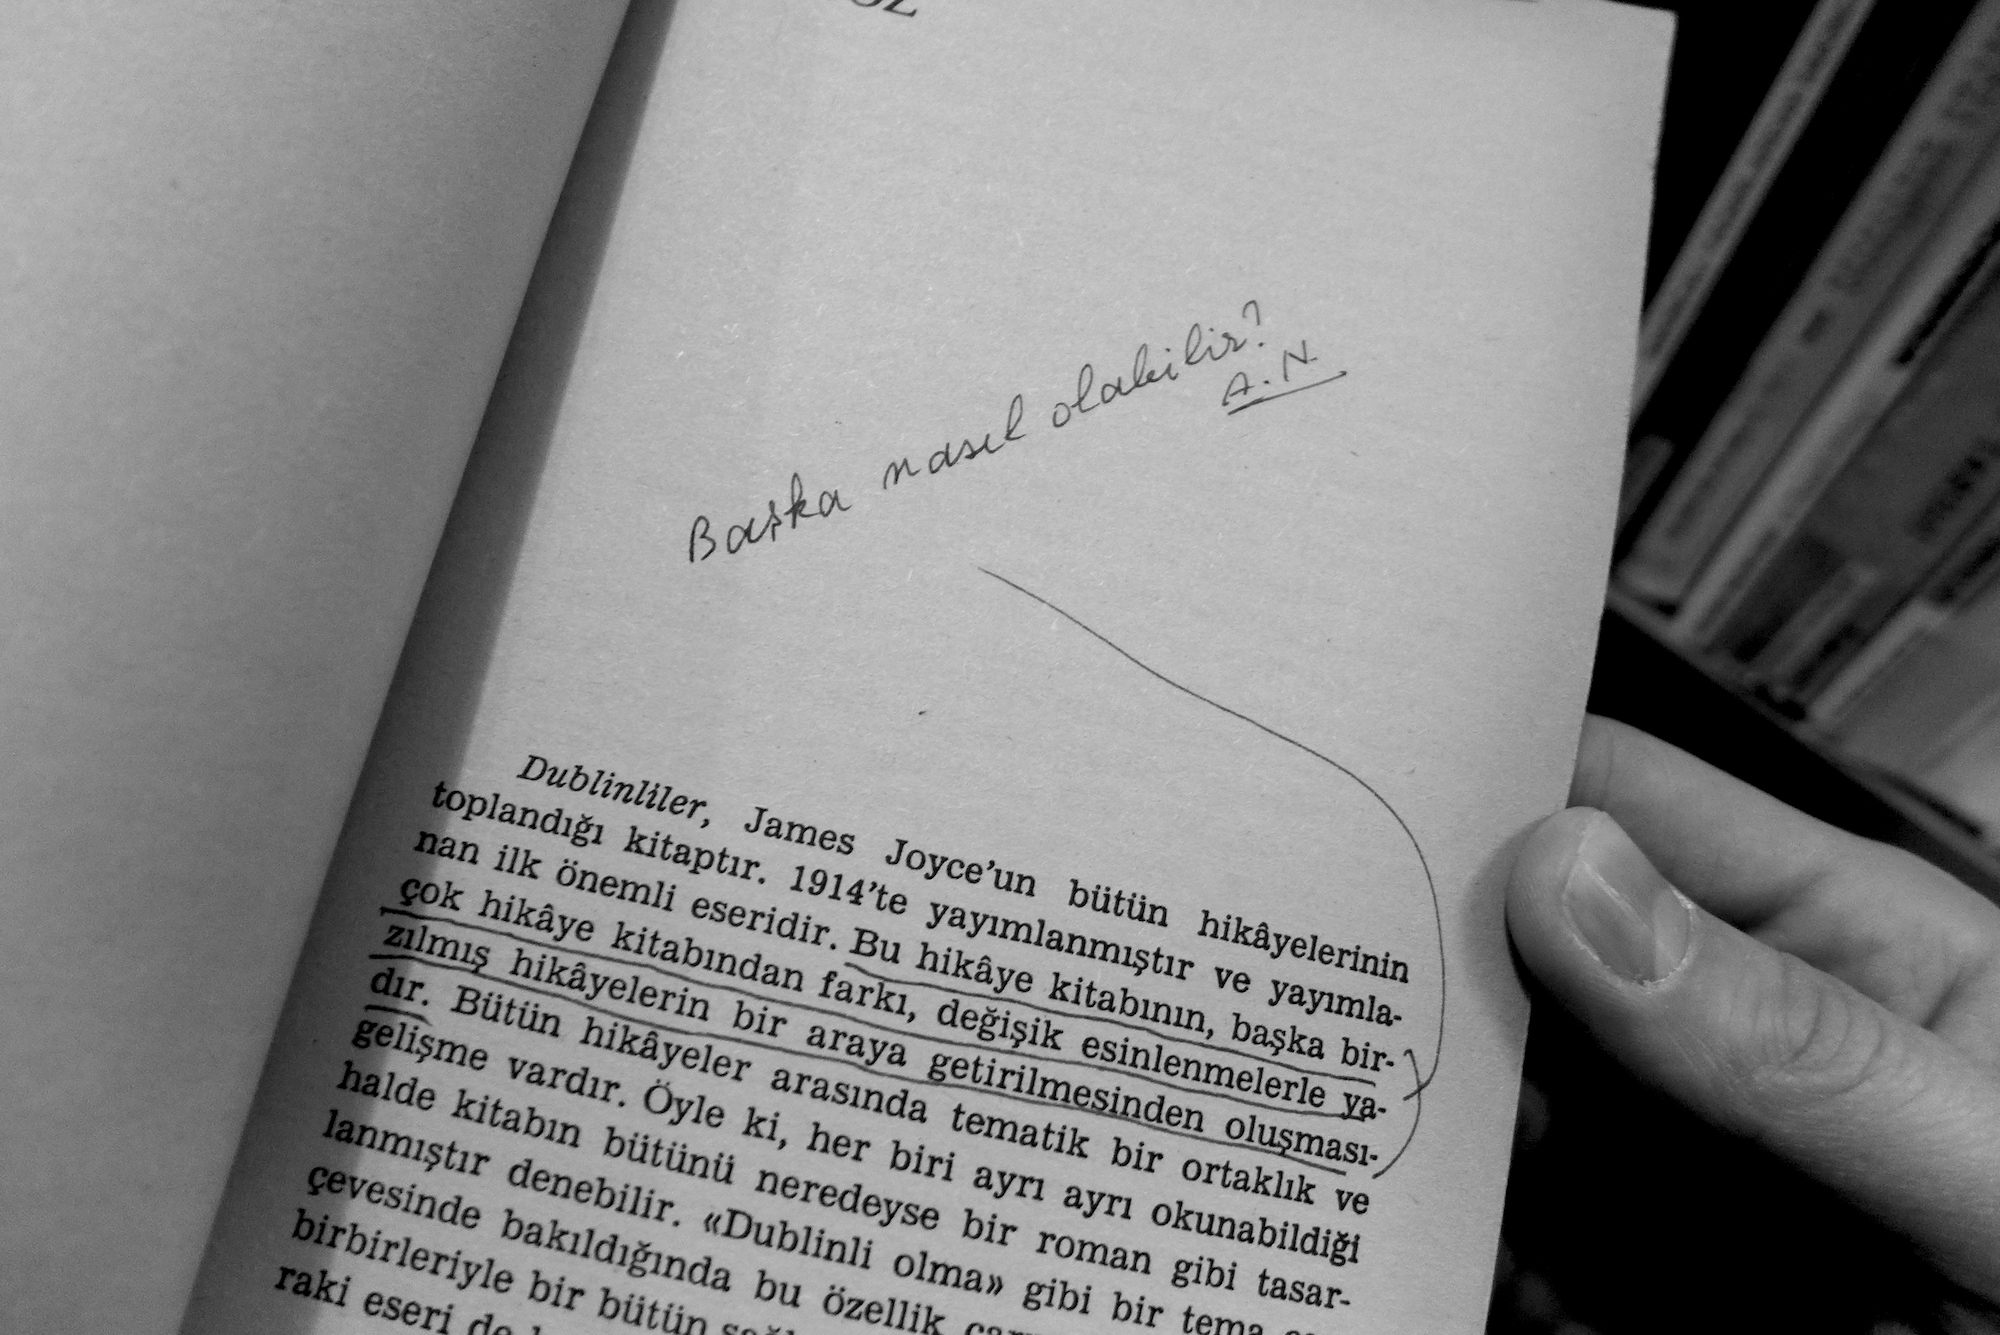 Başka nasıl olabilir?
A.N.
Dublinliler, James Joyce'un bütün hikâyelerinin
toplandığı kitaptır. 1914'te yayımlanmıştır ve yayımla-
nan ilk önemli eseridir. Bu hikâye kitabının, başka bir-
çok hikâye kitabından farkı, değişik esinlenmelerle ya-
zılmış hikâyelerin bir araya getirilmesinden oluşması-
dır. Bütün hikâyeler arasında tematik bir ortaklık ve
gelişme vardır. Öyle ki, her biri ayrı ayrı okunabildiği
halde kitabın bütünü neredeyse bir roman gibi tasar-
lanmıştır denebilir. «Dublinli olma» gibi bir tema
çevesinde bakıldığında bu özellik
birbirleriyle bir bütün
raki eseri de